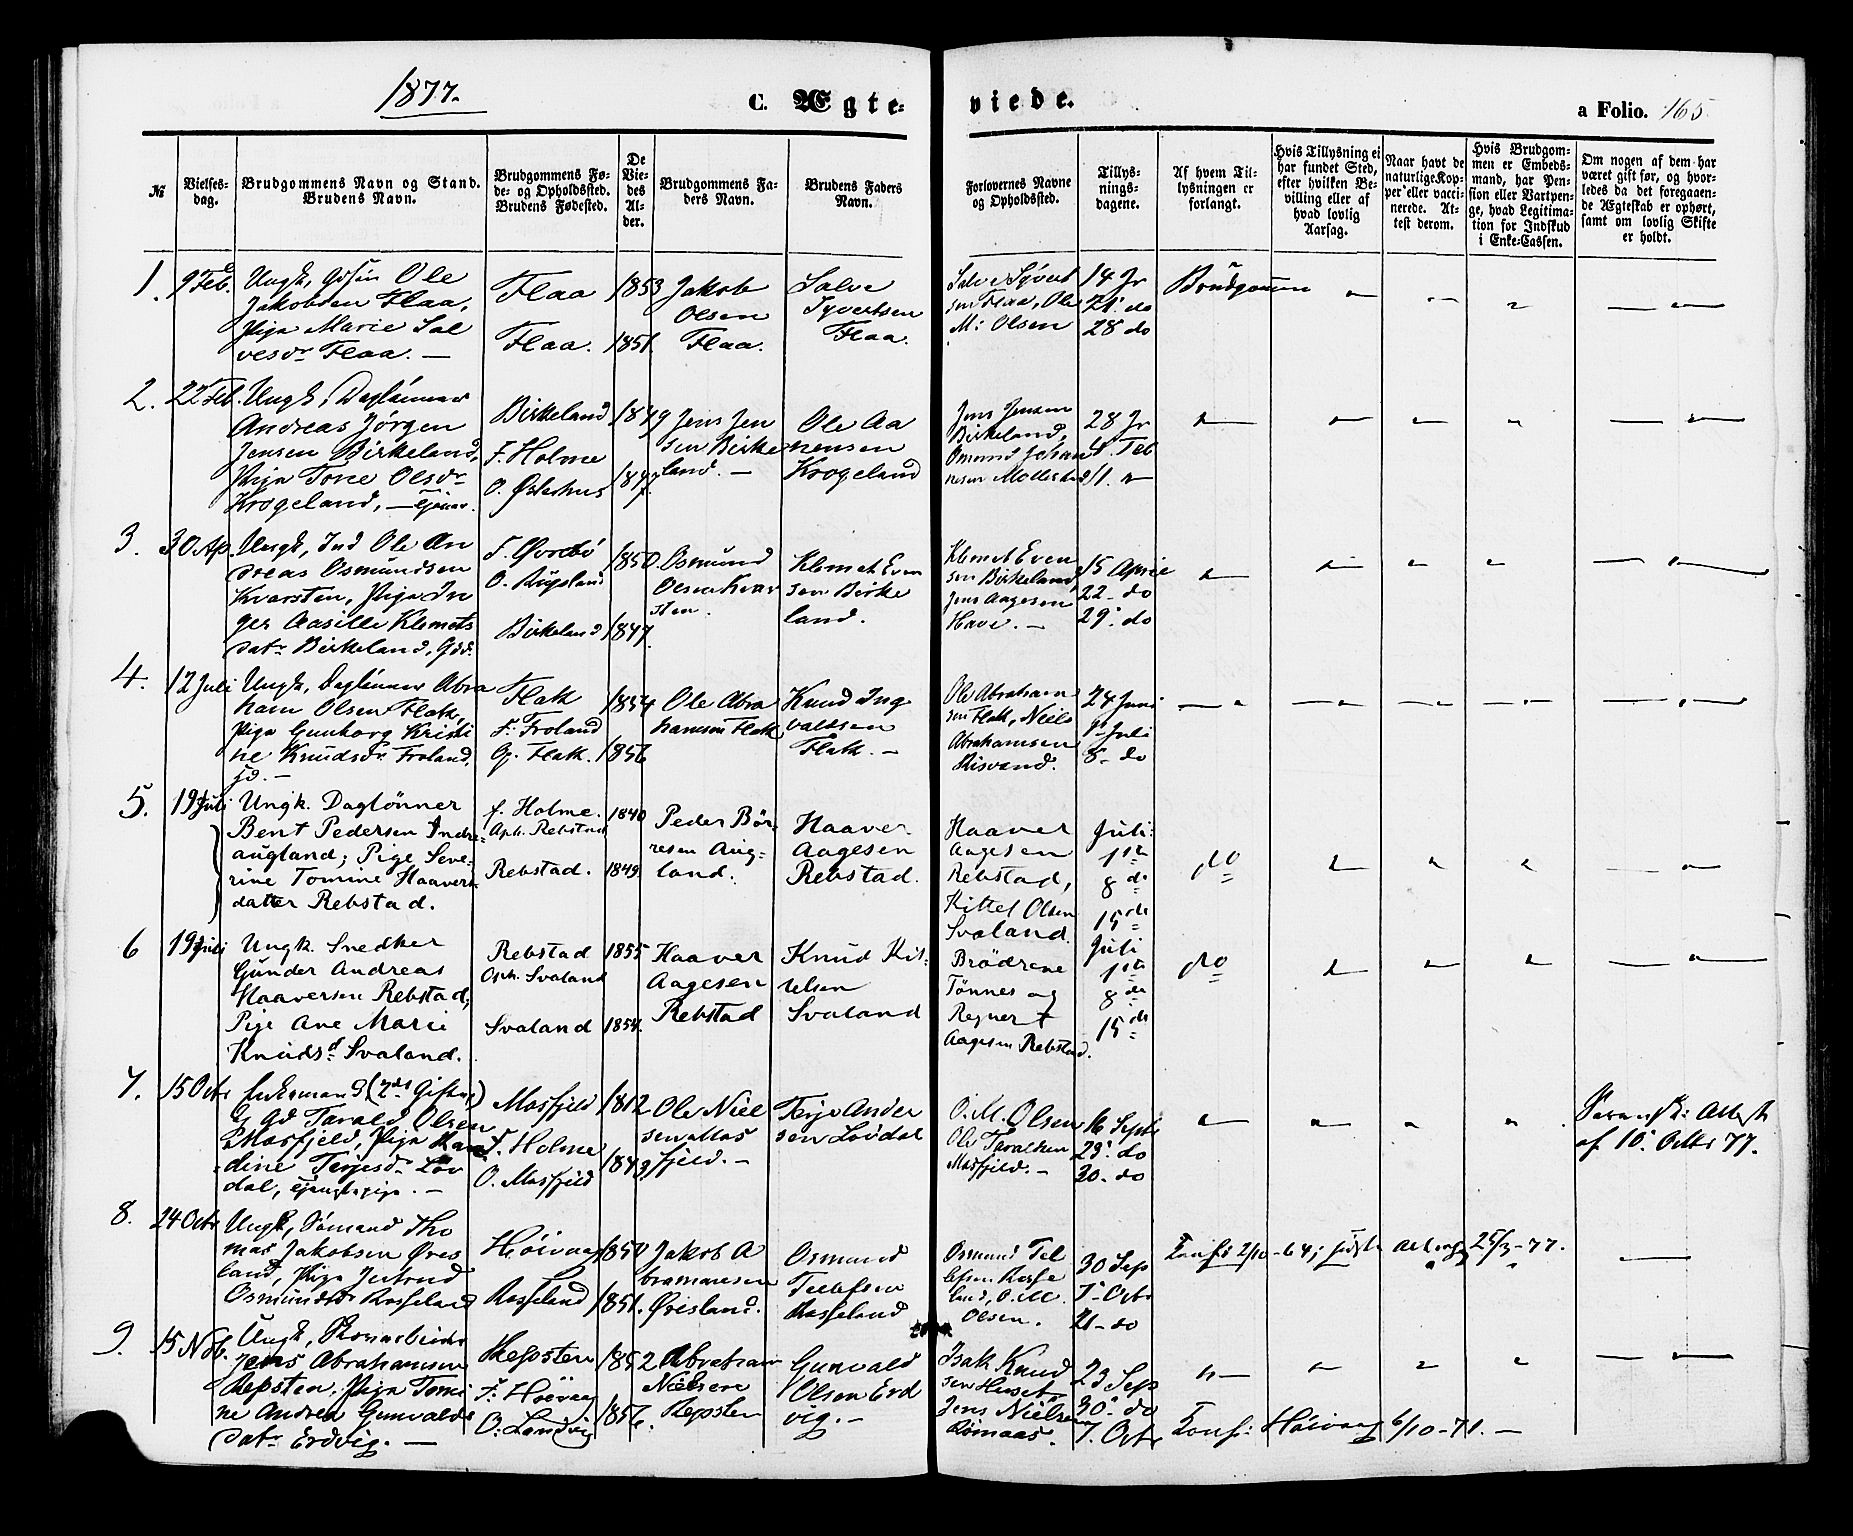 1877.
C. Ægte-
viede.
a Folio. 165
№
Vielses-
dag.
Brudgommens Navn og Stand.
Brudens Navn.
Brudgommens Fø-
de- og Opholdssted.
Brudens Fødested.
De
Vie-
des
Al-
der.
Brudgommens Fa-
ders Navn.
Brudens Faders
Navn.
Forlovernes Navne
og Opholdssted.
Tillys-
nings-
dagene.
Af hvem Til-
lysningen er
forlangt.
Hvis Tillysning ei
har fundet Sted,
efter hvilken Be-
villing eller af
hvad lovlig
Aarsag.
Naar havt de
naturlige Kop-
per eller vacci-
nerede. At-
test derom.
Hvis Brudgom-
men er Embeds-
mand, har Pen-
sion eller Vartpen-
ge, hvad Legitima-
tion for Indskud
i Enke-Cassen.
Om nogen af dem har
været gift før, og hvor-
ledes da det foregaaen-
de Ægteskab er ophørt,
samt om lovlig Skifte
er holdt.
1.
9 Feb.
Ungk, Gdsøn Ole
Jakobsen Flaa,
Pige Marie Sal
vesdr Flaa. —
Flaa
Flaa.
1853
1851.
Jakob
Olsen
Flaa.
Salve
Syvertsen
Flaa.
Salve Syvert
sen Flaa, Ole
M: Olsen
14 Jr
21. do
28 do
Brudgommen
2.
22 Feb.
Ungk, Daglønner
Andreas Jørgen
Jensen Birkeland,
Pige Tone Olsdr
Krogeland, —
Birkeland
F. Holme
O. Østerhus
1849
1847.
Jens Jen
sen Birke
land. —
Ole Aa
nensen
Krogeland
Jens Jensen
Birkeland,
Omund Johan
nesen Mollestad
28 Jr
4. Feb
11. "
3.
30 Ap.
Ungk, Ind Ole An
dreas Osmundsen
Kvarsten, Pige In
ger Aasille Klemets
datr Birkeland, Gdd.
F. Øvrebø
O. Rugsland
Birkeland
1850.
1847.
Osmund
Olsen Kvar
sten.
Klemet Even
sen Birke
land.
Klemet Even
sen Birkeland
Jens Aagesen
Have. —
15 April
22- do
29. do
4.
12 Juli
Ungk, Daglønner Abra
ham Olsen Flak,
Pige Gunborg Kristi
ne Knudsdr Froland,
Flak
F. Froland
O. Flak.
1854
1856
Ole Abra
hamsen Flak
Knud Ing
valdsen
Flak. —
Ole Abraham
sen Flak, Niels
Abrahamsen
Risvand.
24 Juni
1 Juli
8- do
5.
19 Juli
Ungk. Daglønner
Bent Pedersen Indre-
augland; Pige Seve-
rine Tomine Haavers-
datter Rebstad.
f. Holme.
Oph. Rebstad
Rebstad.
1840
1849.
Peder Bør-
resen Aug-
land.
Haaver
Aagesen
Rebstad.
Haaver
Aagesen
Rebstad,
Kittel Olsen
Svaland.
Juli:
1ste
8de
15de
do
6
19 Juli
Ungk. Snedker
Gunder Andreas
Haaversen Rebstad,
Pige Ane Marie
Knudsd. Svaland.
Rebstad
Oph. Svaland
Svaland
1855
1854.
Haaver
Aagesen
Rebstad
Knud Kit-
telsen
Svaland
Brødrene
Tønnes og
Regnert
Aagesen Rebstad.
Juli
1ste
8de
15de
do
7.
15 Octr
Enkemand (2det Giftem.)
Gd Tarald Olsen
Masfjeld, Pige
dine Terjesdr Løv
dal,
Masfjeld
F. Holme
O. Masfjeld
1812
1843.
Ole Niel
sen Mas
fjeld. —
Terje Ander
sen Løvdal
O. M. Olsen
Ole Taraldsen
Masfjeld. —
16 Septr
23. do
30. do
Attest
af 10. Octbr 77.
8.
24 Octr
Ungk, Sømand Tho
mas Jakobsen Øres
land, Pige Jertrud
Osmundsdr Rosseland
Høivaag
Rosseland
1850
1851.
Jakob A
bramsen
Øresland.
Osmund
Tellefsen
Rosseland
Osmund Tel
lefsen Rosse
land, O. M.
Olsen.
30 Sep
7. Octr
21- do
Konf: 2/10-64; 25/3-77.
9.
15 Nov.
Ungk,
Jens Abrahamsen
Repsten, Pige Tomi
ne Andrea Gunvalds
datr Erdvig. —
Repsten
F. Høivaag
O. Landvig
1852
1856.
Abraham
Nielsen
Repsten
Gunvald
Olsen Erd
vig. —
Isak Knud
sen Huset
Jens Nielsen
Rømaas.
23 Sep
30. do
7. Octr
Konf: Høivaag 6/10-71. —